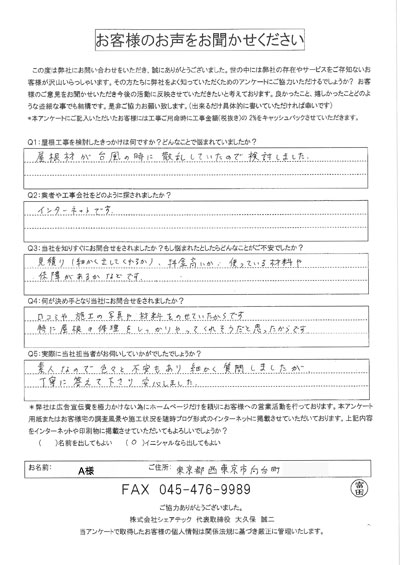 お客様のお声をお聞かせください
この度は弊社にお問い合わせをいただき、誠にありがとうございました。世の中には弊社の存在やサービスをご存知ないお
客様が沢山いらっしゃいます。その方たちに弊社をよく知っていただくためのアンケートにご協力いただけるでしょうか? お客
様のご意見をお聞かせいただき今後の活動に反映させていただきたいと考えております。良かったこと、嬉しかったことどのよ
うな些細な事でも結構です。是非ご協力お願い致します。(出来るだけ具体的に書いていただければ幸いです)
*本アンケートにご記入いただいたお客様には工事ご用命時に工事金額(税抜き)の 2%をキャッシュバックさせていただきます。
Q1:屋根工事を検討したきっかけは何ですか?どんなことで悩まれていましたか?
屋根材が台風の時に散乱していたので検討しました。
Q2:業者や工事会社をどのように探されましたか?
インターネットです。
Q3:当社を知りすぐにお問合せをされましたか?もし悩まれたとしたらどんなことがご不安でしたか?
見積り(細かく出してくれるか)、料金高いか、使っている材料や
保障があるかなどです。
Q4:何が決め手となり当社にお問合せをされましたか?
口コミや施工の写真や材料をのせていたからです
特に屋根の修理をしっかりやってくれそうだと思ったからです
Q5:実際に当社担当者がお伺いしていかがでしたでしょうか?
素人なので色々と不安もあり細かく質問しましたが、
丁寧に答えて下さり安心しました。
*弊社は広告宣伝費を極力かけない為にホームページだけを頼りにお客様への営業活動を行っております。本アンケート
用紙またはお客様宅の調査風景や施工状況を随時ブログ形式のインターネットに掲載させていただいております。上記内容
をインターネットや印刷物に掲載させていただいてもよろしいでしょうか?
( )名前を出してもよい ( O )イニシャルなら出してもよい
お名前: A様 ご住所: 東京都西東京市向台町
FAX 045-476-9989
富田
ご協力ありがとうございました。
株式会社シェアテック 代表取締役 大久保 誠二
当アンケートで取得したお客様の個人情報は関係法規に基づき厳正に管理いたします。